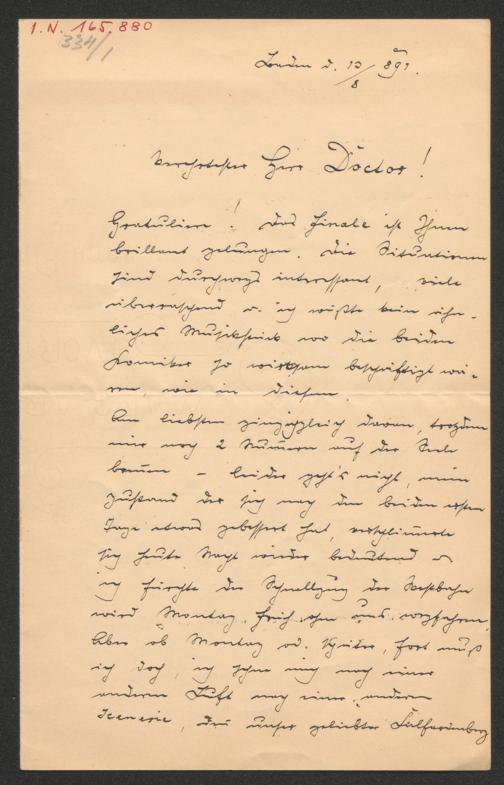 I.N. 165.880
334/1
d. 12/8 891.
Verehrtester Herr Doctor!
Gratuliere! Das Finale ist Ihnen
brillant gelungen. Die Situationen
sind durchwegs interessant, viele
überraschend u. ich wüßte kein ähn-
liches Musikstück wo die beiden
Komiker so wirksam beschäftigt wä-
ren, wie in diesem.
Am liebsten ging ich gleich daran, trozdem
mir noch 2 Numern auf der Seele
brennen – leider geht's nicht, mein
Zustand der sich nach den beiden ersten
Tage etwas gebessert hat, verschlimerte
sich heute Nacht wieder bedeutend u.
ich fürchte der Schnellzug der Westbahn
wird Montag früh ohne uns wegfahren.
Aber ob Montag od. später, fort muß
ich doch, ich sehne mich nach einer
anderen Luft nach einer anderen
Scenerie, unser geliebter Kalharinberg